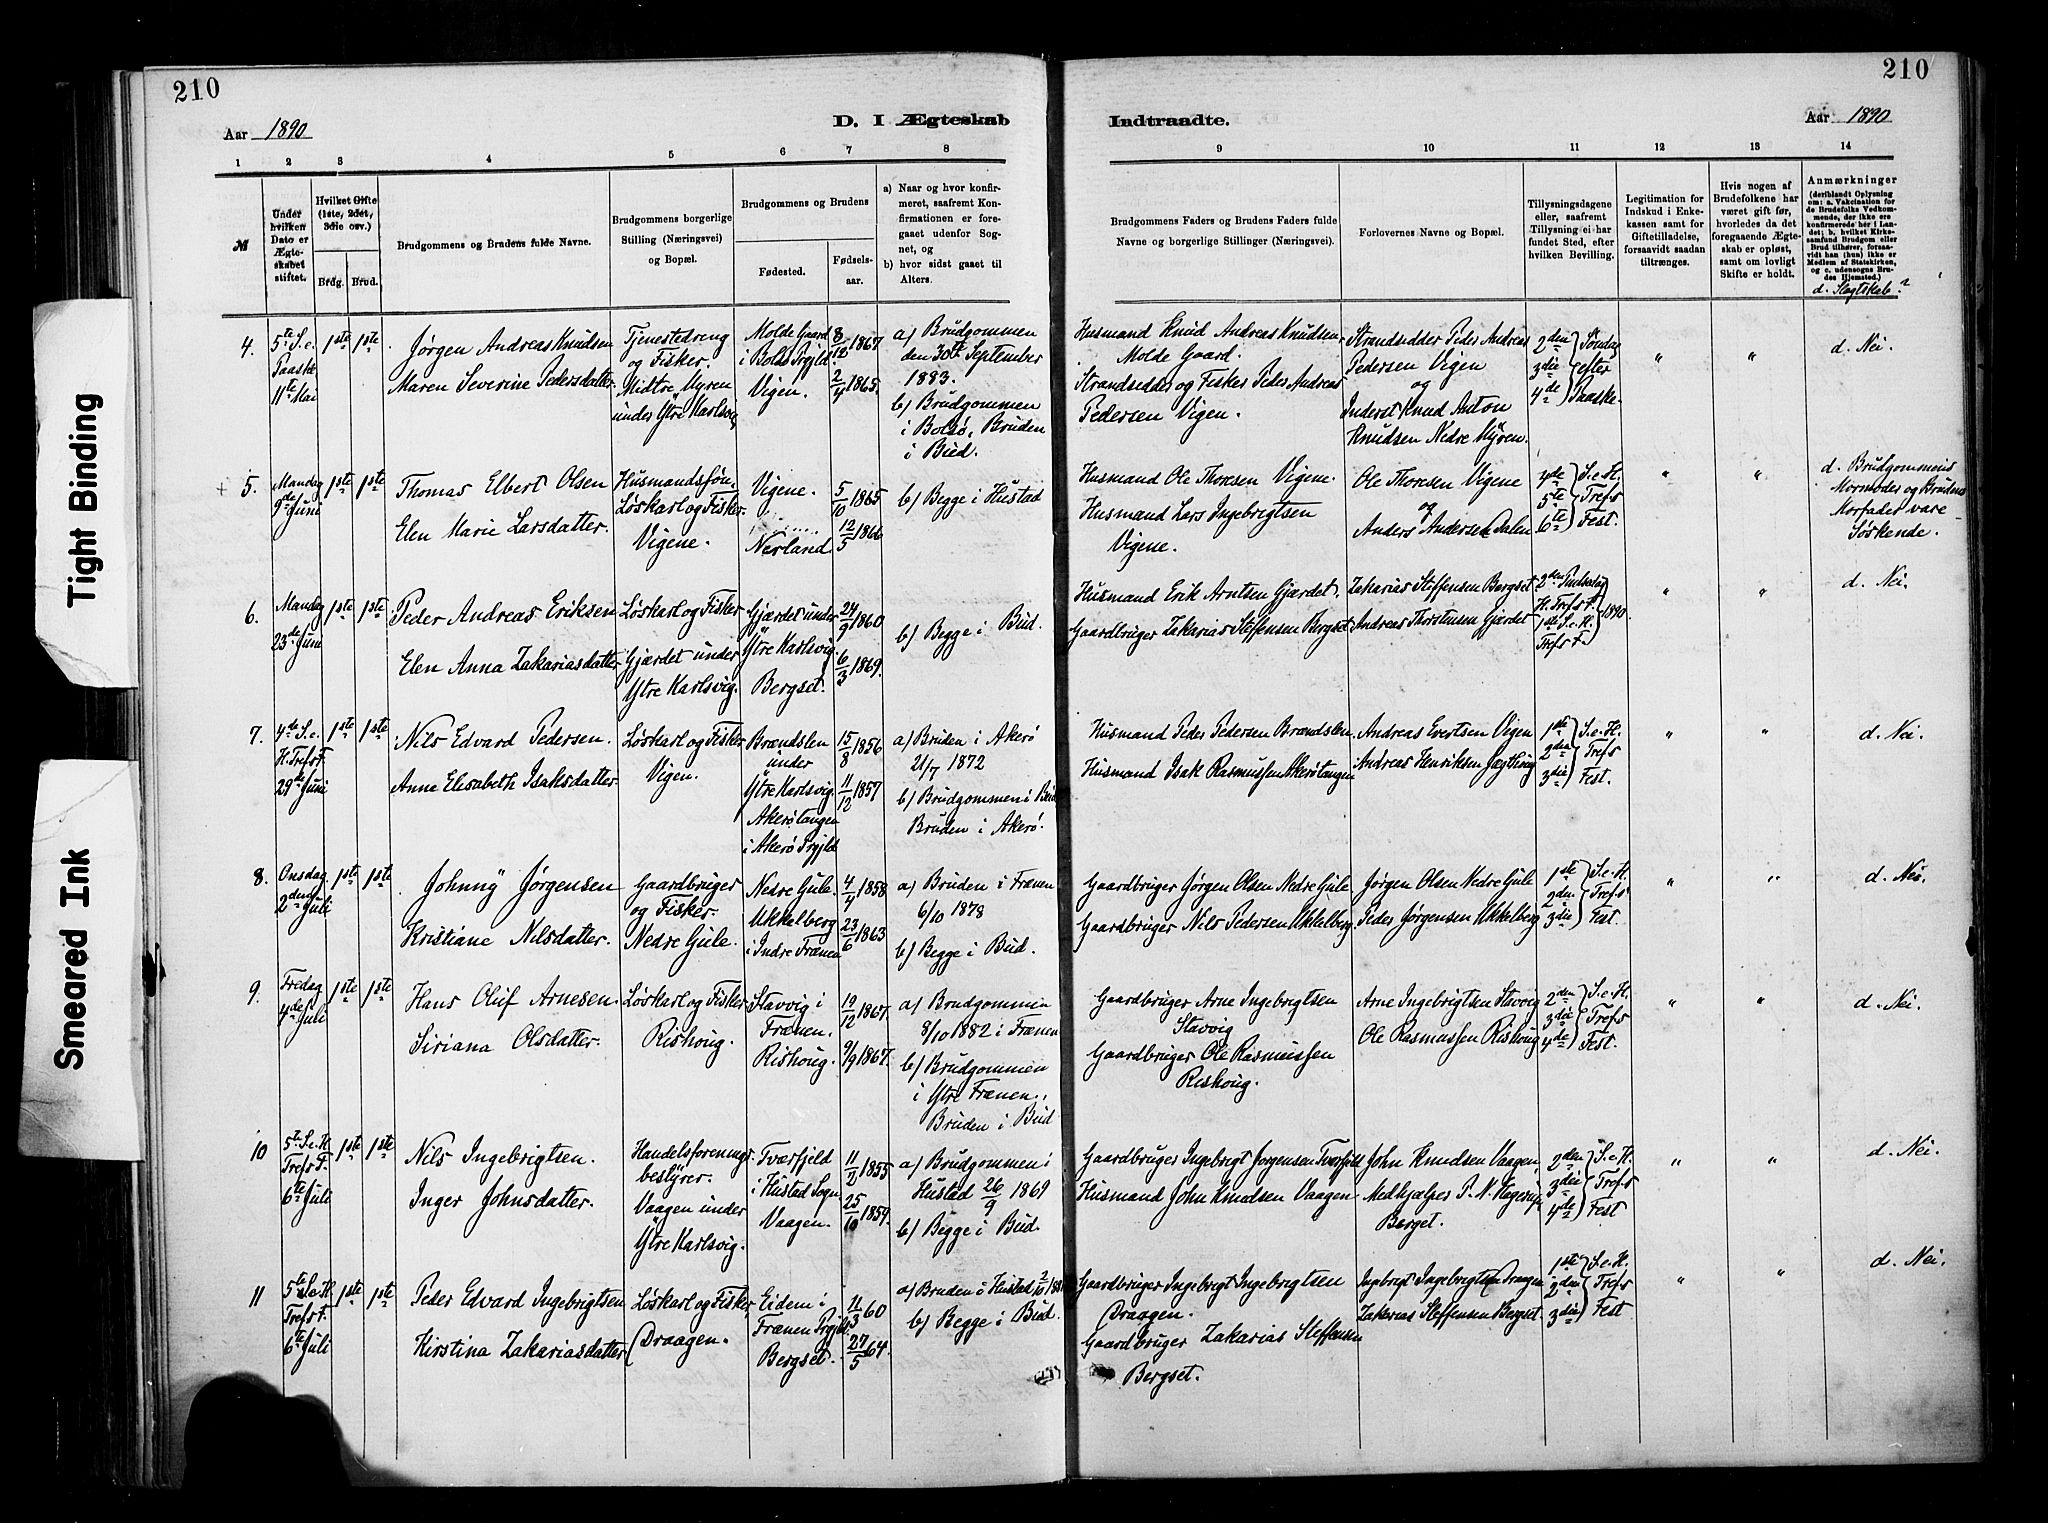 210
210
Aar 1890
D. I Ægteskab
Indtraadte.
Aar 1890
1 2 3 4 5 6 7 8
9 10 11 12 13 14
№
Under hvilken Dato er Ægteskabet stiftet.
Hvilket Gifte (1ste, 2det, 3die osv.)
Brdg. Brud.
Brudgommens og Brudens fulde Navne.
Brudgommens borgerlige Stilling (Næringsvei) og Bopæl.
Brudgommens og Brudens
Fødested.
Fødselsaar.
a) Naar og hvor konfirmeret, saafremt Konfirmationen er foregaaet udenfor Sognet, og
b) hvor sidst gaaet til Alters.
Brudgommens Faders og Brudens Faders fulde Navne og borgerlige Stillinger (Næringsvei).
Forlovernes Navne og Bopæl.
Tillysningsdagene eller, saafremt Tillysning ei har fundet Sted, efter hvilken Bevilling.
Legitimation for Indskud i Enkekassen samt for Giftetilladelse, forsaavidt saadan tiltrænges.
Hvis nogen af Brudefolkene har været gift før, hvorledes da det foregaaende Ægteskab er opløst, samt om lovligt Skifte er holdt.
Anmærkninger
(deriblandt Oplysning om: a. Vakcination for de Brudefolks Vedkommende, der ikke ere konfirmerede her i Landet; b. hvilket Kirkesamfund Brudgom eller Brud tilhører, forsaavidt han (hun) ikke er Medlem af Statskirken, og c. udensogns Brudes Hjemsted.)
d. Slægtskab?
4.
5te S. e.
Paaske
11te Mai
1ste 1ste
Jørgen Andreas Knudsen
Maren Severine Pedersdatter.
Tjenestedreng
og Fisker.
Midtre Myren
under Ytre Karlsvig
Molde Gaard
i Bolsø Prgjld
Vigen.
8/12 1867
2/4 1865.
a) Brudgommen
den 30te September
1883.
b) Brudgommen
i Bolsø, Bruden
i Bud.
Husmand Knud Andreas Knudsen
Molde Gaard.
Strandsidder og Fisker Peder Andreas
Pedersen Vigen.
Strandsidder Peder Andreas
Pedersen Vigen
og
Inderst Knud Anton
Knudsen Nedre Myren.
2den
3die
4de
Søndag
efter
Paaske.
" "
d. Nei.
+ 5.
Mandag
9de Juni
1ste 1ste
Thomas Elbert Olsen
Elen Marie Larsdatter.
Husmandsføn,
Løskarl og Fisker.
Vigene.
Vigene.
Nerland.
5/10 1865
12/5 1866
b) Begge i Hustad
Husmand Ole Thoresen Vigene.
Husmand Lars Ingebrigtsen
Vigene.
Ole Thoresen Vigene
og
Anders Andersen Dalen
4de
5te
6te
S. e. H.
Trefs
Fest.
" "
d. Brudgommens
Mormoder og Brudens
Morfader vare
Søskende.
6.
Mandag
23de Juni
1ste 1ste
Peder Andreas Eriksen
Elen Anna Zakariasdatter
Løskarl og Fisker
Gjærdet under
Ytre Karlsvig.
Gjærdet under
Ytre Karlsvig.
Bergset.
24/9 1860
6/3 1869.
b) Begge i Bud.
Husmand Erik Arntsen Gjærdet.
Gaardbruger Zakarias Steffensen Bergset
Zakarias Steffensen Bergset
Andreas Thorstensen Gjærdet
2den Pintsedag
H. Trefs F.
1ste S. e. H.
Trefs F.
1890.
" "
d. Nei.
7.
4de S. e.
H. Trefs F.
29de Juni
1ste 1ste
Nils Edvard Pedersen.
Anne Elisabeth Isaksdatter.
Løskarl og Fisker
Vigen.
Brændslen
under
Ytre Karlsvig.
Akerøtangen
i Akerø Prgjld
15/8 1856
11/12 1857
a) Bruden i Akerø
21/7 1872
b) Brudgommen i Bud
Bruden i Akerø.
Husmand Peder Pedersen Brændslen.
Husmand Isak Rasmussen Akerøtangen
Andreas Evertsen Vigen
Andreas Henriksen Jægtkvig
1ste
2den
3die
S. e. H.
Trefs
Fest.
" "
d. Nei.
8.
Onsdag
2den Juli
1ste 1ste
Johnny Jørgensen
Kristiane Nilsdatter.
Gaardbruger
og Fisker.
Nedre Gule.
Nedre Gule.
Ukkelberg
i Indre Frænen
4/4 1858
23/6 1863
a) Bruden i Frænen
6/10 1878
b) Begge i Bud.
Gaardbruger Jørgen Olsen Nedre Gule
Gaardbruger Nils Pedersen Ukkelberg
Jørgen Olsen Nedre Gule
Peder Jørgensen Ukkelberg
1ste
2den
3die
S. e. H.
Trefs
Fest.
" "
d. Nei.
9.
Fredag
4de Juli
1ste 1ste
Hans Oluf Arnesen.
Siriana Olsdatter.
Løskarl og Fisker
Rishoug.
Stavvig i
Frænen.
Rishoug.
19/12 1867.
9/9 1867.
a) Brudgommen
8/10 1882 i Frænen
b) Brudgommen
i Ytre Frænen.
Bruden i Bud
Gaardbruger Arne Ingebrigtsen
Stavvig
Gaardbruger Ole Rasmussen
Rishoug.
Arne Ingebrigtsen Stavvig
Ole Rasmussen Rishoug
2den
3die
4de
S. e. H.
Trefs
Fest.
" "
d. Nei.
10
5te S. e. H
Trefs F.
6te Juli
1ste 1ste
Nils Ingebrigtsen.
Inger Johnsdatter.
Handelsforenings-
bestyrer.
Vaagen under
Ytre Karlsvig.
Tværfjeld
i Hustad Sogn
Vaagen.
11/2 1855
25/10 1859.
a) Brudgommen i
Hustad 26/9 1869
b) Begge i Bud.
Gaardbruger Ingebrigt Jørgensen Tværfjeld
Husmand John Knudsen Vaagen
John Knudsen Vaagen
Medhjælper P. N. Hagerup
Bergset.
2den
3die
4de
S. e. H.
Trefs
Fest
" "
d. Nei.
11
5te S. e. H
Trefs F.
6te Juli
1ste 1ste
Peder Edvard Ingebrigtsen
Kirstina Zakariasdatter
Løskarl og Fisker
Draagen.
Eidem i
Frænen Prgjld.
Bergset.
11/3 60
27/5 64.
a) Bruden i Hustad
b) Begge i Bud.
Gaardbruger Ingebrigt Ingebrigtsen
Draagen.
Gaardbruger Zakarias Steffensen
Bergset.
Ingebrigt Ingebrigtsen Draagen
Zakarias Steffensen Bergset.
1ste
2den
3die
S. e. H.
Trefs
Fest
" "
d. Nei.
Tight Binding
Smeared Ink